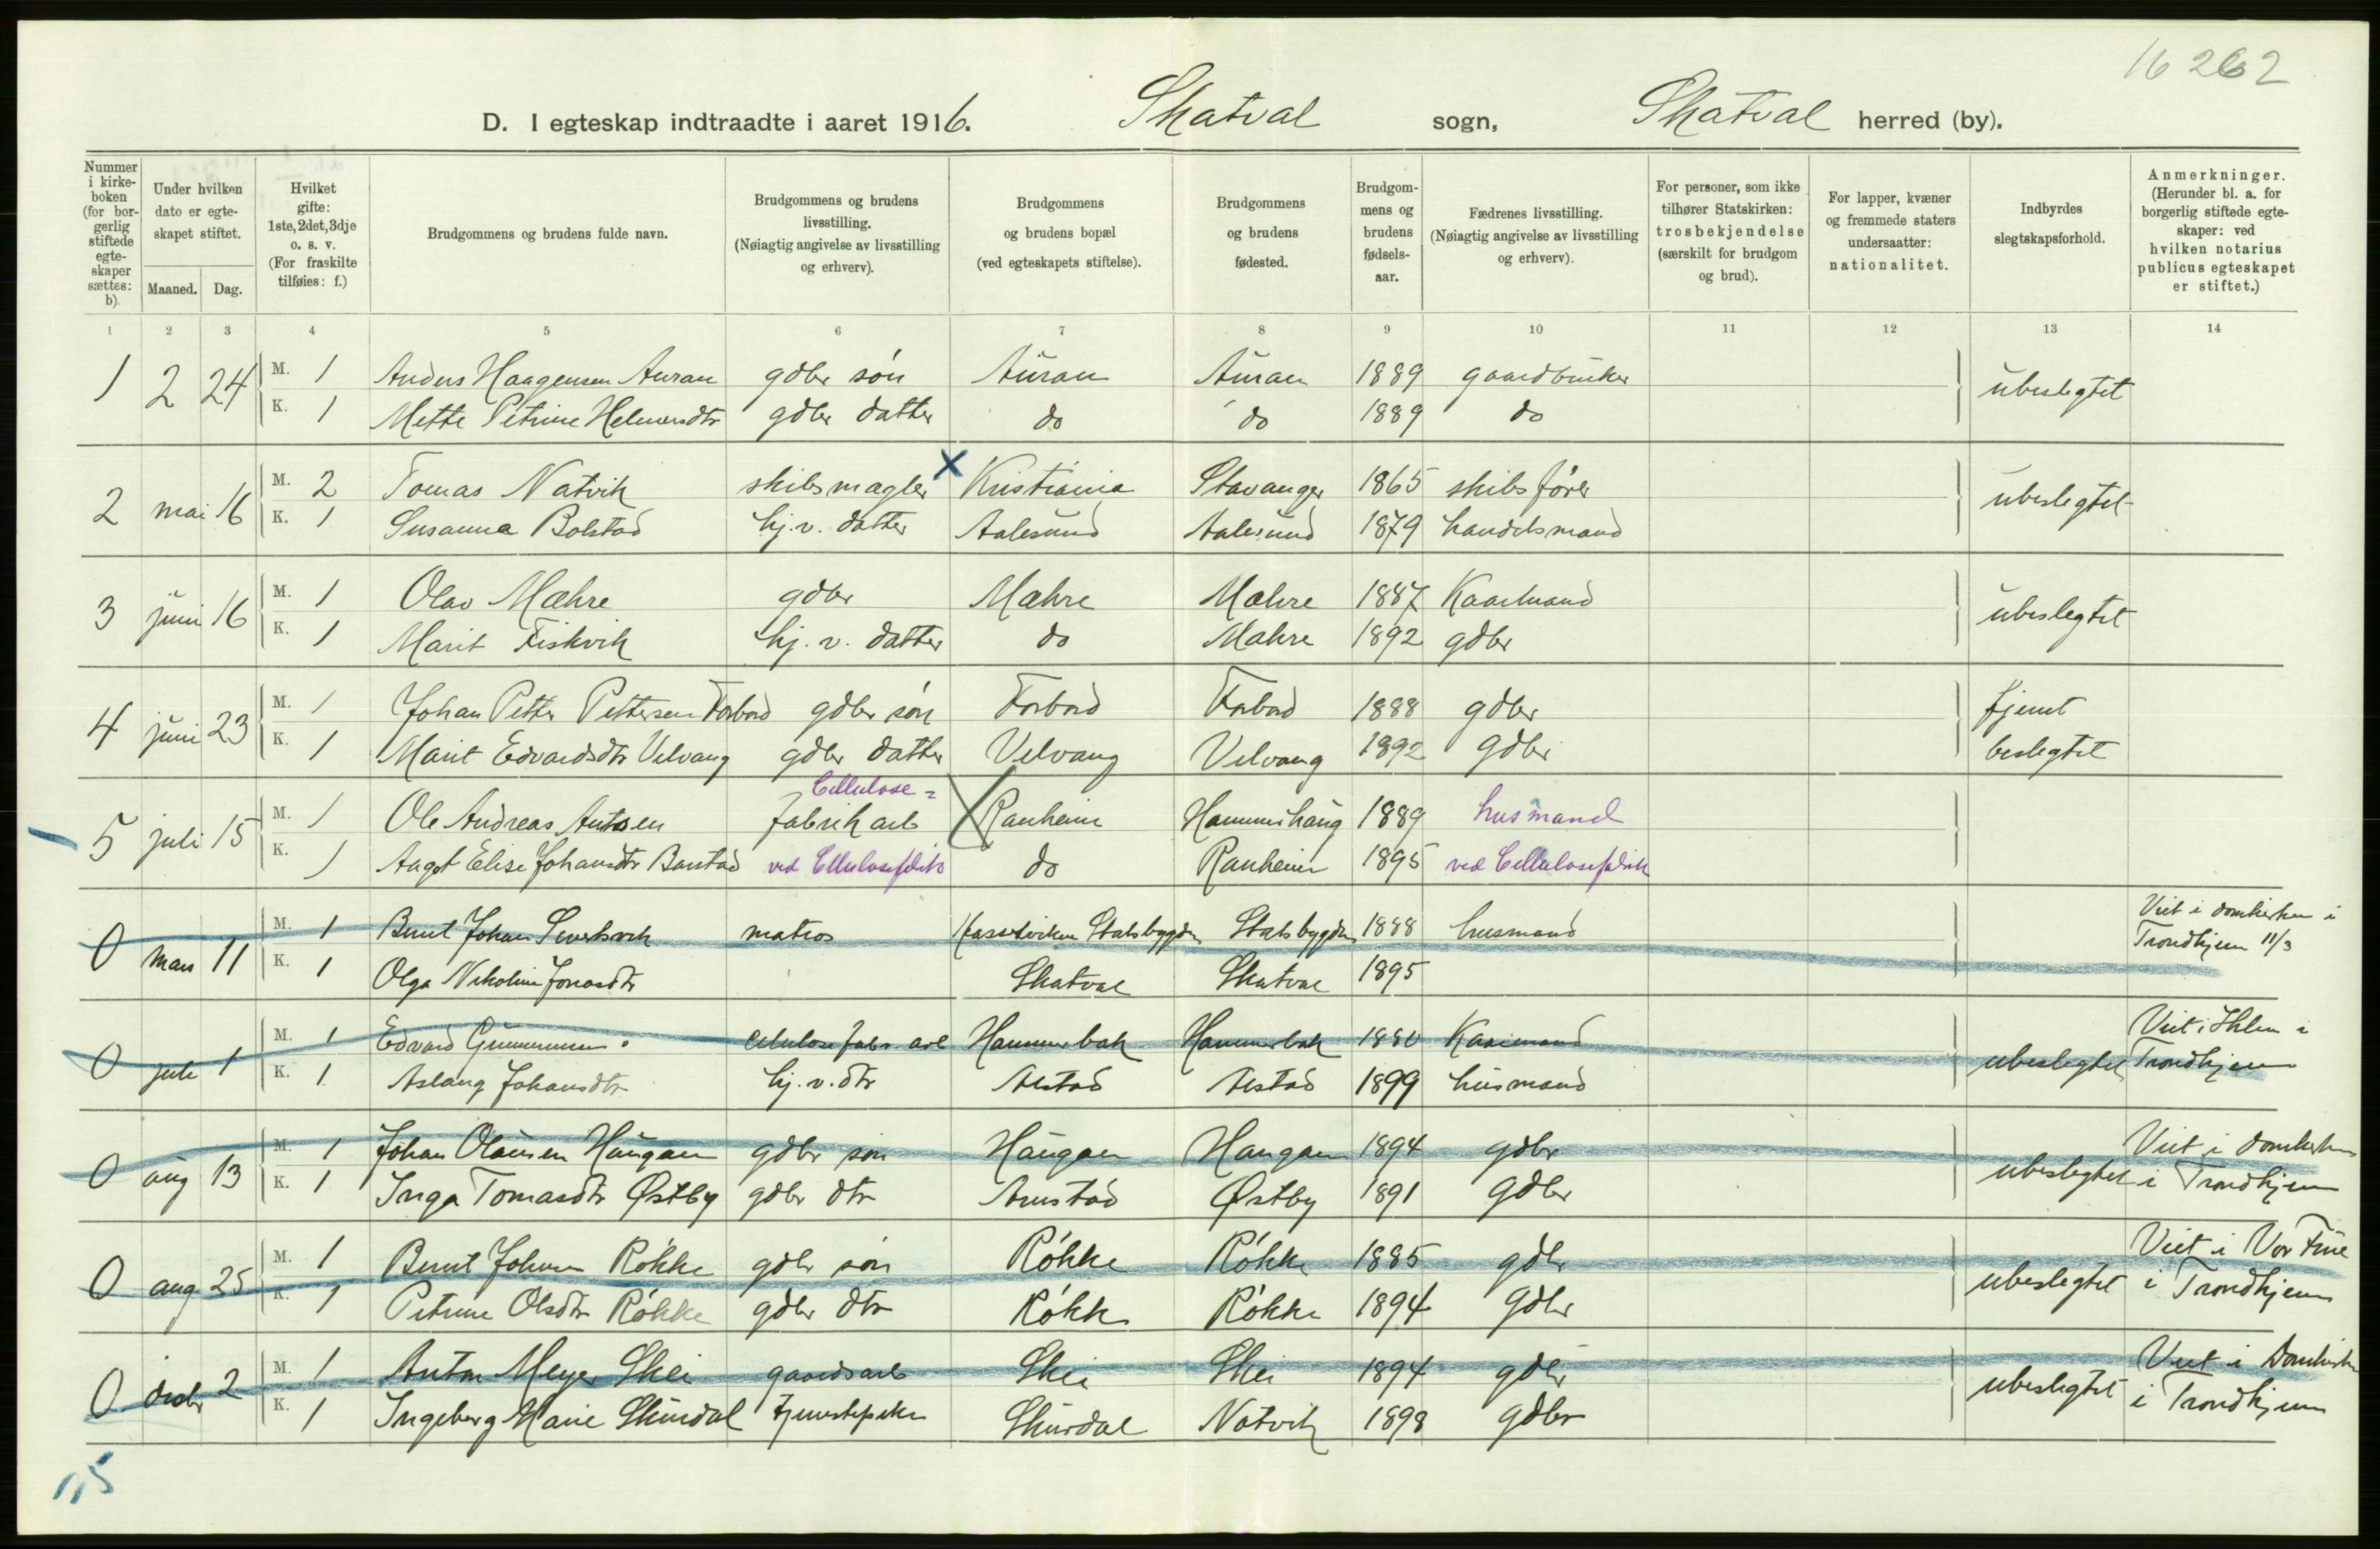 16 262
D. I egteskap indtraadte i aaret 1916. Skatval sogn, Skatval herred (by).
Nummer i kirke- boken (for bor- gerlig stiftede egte- skaper sættes: b).
Under hvilken dato er egte- skapet stiftet.
Maaned. Dag.
Hvilket gifte: 1ste, 2det, 3dje o. s. v. (For fraskilte tilføies: f.)
Brudgommens og brudens fulde navn.
Brudgommens og brudens livsstilling. (Nøiagtig angivelse av livsstilling og erhverv).
Brudgommens og brudens bopæl (ved egteskapets stiftelse).
Brudgommens og brudens fødested.
Brudgom- mens og brudens fødsels- aar.
Fædrenes livsstilling. (Nøiagtig angivelse av livsstilling og erhverv).
For personer, som ikke tilhører Statskirken: trosbekjendelse (særskilt for brudgom og brud).
For lapper, kvæner og fremmede staters undersaatter: nationalitet.
Indbyrdes slegtskapsforhold.
Anmerkninger. (Herunder bl. a. for borgerlig stiftede egte- skaper: ved hvilken notarius publicus egteskapet er stiftet.)
1 2 3 4 5 6 7 8 9 10 11 12 13 14
1 2 24 M. 1 Anders Haagensen Auran gdbr søn Auran Auran 1889 gaardbruker ubeslegtet
K. 1 Mette Petrine Helmersdtr gdbr datter do do 1889 do
2 mai 16 M. 2 Tomas Natvik skibsmægler Kristiania Stavanger 1865 skibsfører ubeslegtet
K. 1 Susanna Bolstad hj. v. datter Aalesund Aalesund 1879 handelsmand
3 juni 16 M. 1 Olav Mæhre gdbr Mæhre Mæhre 1887 Kaarmand ubeslegtet
K. 1 Marit Fiskvik hj. v. datter do Mæhre 1892 gdbr
4 juni 23 M. 1 Johan Petter Pettersen Forbord gdbr søn Forbord Forbord 1888 gdbr fjernt
K. 1 Marit Edvardsdtr Velvang gdbr datter Velvang Velvang 1892 gdbr beslegtet
Cellulose-
5 juli 15 M. 1 Ole Andreas Antonsen fabrik arb Ranheim Hammerhaug 1889 husmand
K. 1 Aagot Elise Johansdtr Barstad ved Cellulosefabrik do Ranheim 1895 ved Cellulosefabrik
0 mars 11 M. 1 Bernt Johan Sivertsvik matros Stadsbygden Stadsbygden 1888 husmand Viet i domkirken i Trondhjem 11/3
K. 1 Olga Nikoline Jonasdtr Skatval Skatval 1895
0 juli 1 M. 1 Edvard Gunnersen celulose fabr. arb Hammerbak Hammerbak 1880 Kaarmand ubeslegtet Viet i Ihlen i Trondhjem
K. 1 Aslaug Johansdtr hj. v. dtr Alstad Alstad 1899 husmand
0 aug 13 M. 1 Johan Olausen Haugan gdbr søn Haugan Haugan 1894 gdbr ubeslegtet Viet i domkirken i Trondhjem
K. 1 Inga Tomasdtr Østby gdbr dtr Arnstad Østby 1891 gdbr
0 aug 25 M. 1 Bernt Johan Røkke gdbr søn Røkke Røkke 1885 gdbr ubeslegtet Viet i Vor Frue i Trondhjem
K. 1 Petrine Olsdtr Røkke gdbr dtr Røkke Røkke 1894 gdbr
0 decbr 2 M. 1 Anton Meyer Skei gaardsarb Skei Skei 1894 gdbr ubeslegtet Viet i Domkirken i Trondhjem
K. 1 Ingeborg Marie Skurdal tjenestepike Skurdal Natvik 1898 gdbr